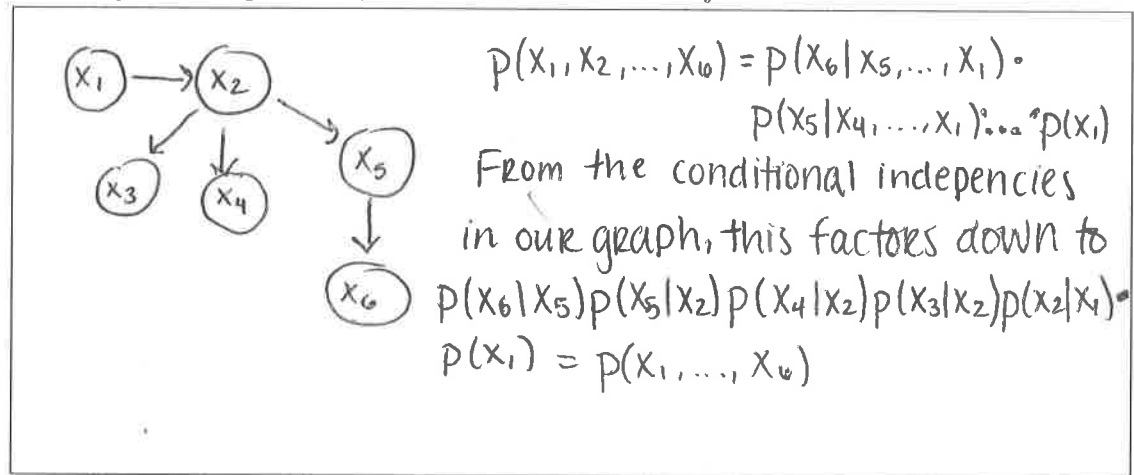 X₁ X₂
X₃ X₄ X₅
X₆
p(X₁, X₂, ..., X₆) = p(X₆|X₅, ..., X₁)·
p(X₅|X₄, ..., X₁)·...·p(X₁)
From the conditional indepencies
in our graph, this factors down to
p(X₆|X₅)p(X₅|X₂)p(X₄|X₂)p(X₃|X₂)p(X₂|X₁)·
p(X₁) = p(X₁, ..., X₆)